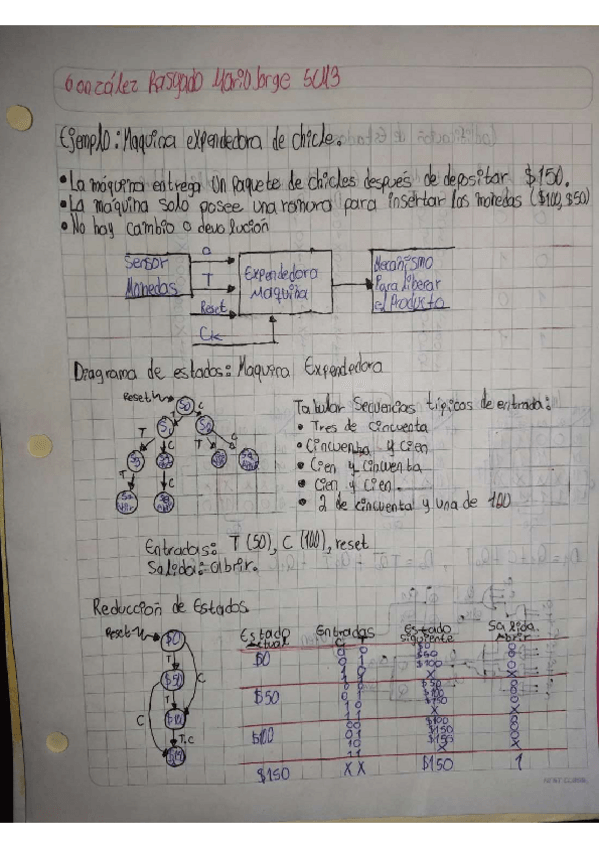 González Rasgado Mario Jorge 5CM3
Ejemplo: Maquina expendedora de chicle.
• La máquina entrega un paquete de chicles después de depositar $150.
• La maquina solo posee una ranura para insertar las monedas ($100, $50)
• No hay cambio o devolución
Sensor Monedas
T
Reset
Clk
Expendedora Maquina
Mecanismo Para liberar el Producto
Diagrama de estados: Maquina Expendedora
Reset
S0
C
T
S1
S2
T
C
T
C
T
C
Tabular Secuencias tipicas de entrada:
• Tres de cincuenta
• Cincuenta y cien
• Cien y cincuenta
• Cien y cien.
• 2 de cincuenta y una de 100
Entradas: T (50), C (100), reset
Salida: abrir.
Reducción de Estados
Reset
$0
$50
T
C
C
T,C
Estado Actual Entradas C T Estado Siguiente Salida Abrir
$0 00 $0 0
01 $50 0
10 $100 0
11 X X
$50 00 $50 0
01 $100 0
10 $150 0
11 X X
$100 00 $100 0
01 $150 0
10 $150 0
11 X X
$150 X X $150 1